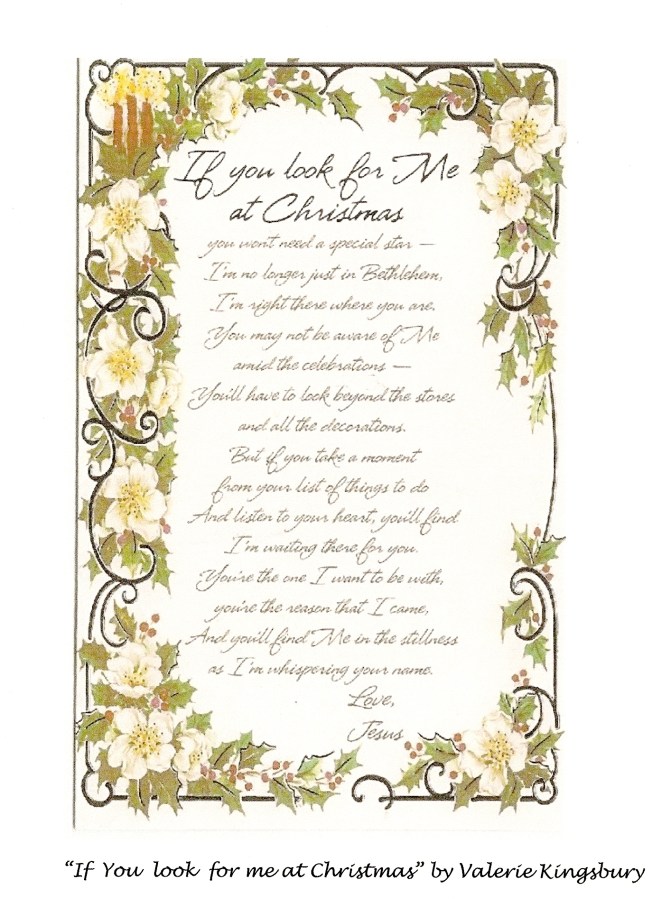 If you look for Me
at Christmas
you won't need a special star —
I'm no longer just in Bethlehem,
I'm right there where you are.
You may not be aware of Me
amid the celebrations —
You'll have to look beyond the stores
and all the decorations.
But if you take a moment
from your list of things to do
And listen to your heart, you'll find
I'm waiting there for you.
You're the one I want to be with,
you're the reason that I came,
And you'll find Me in the stillness
as I'm whispering your name.
Love,
Jesus
“If You look for me at Christmas” by Valerie Kingsbury